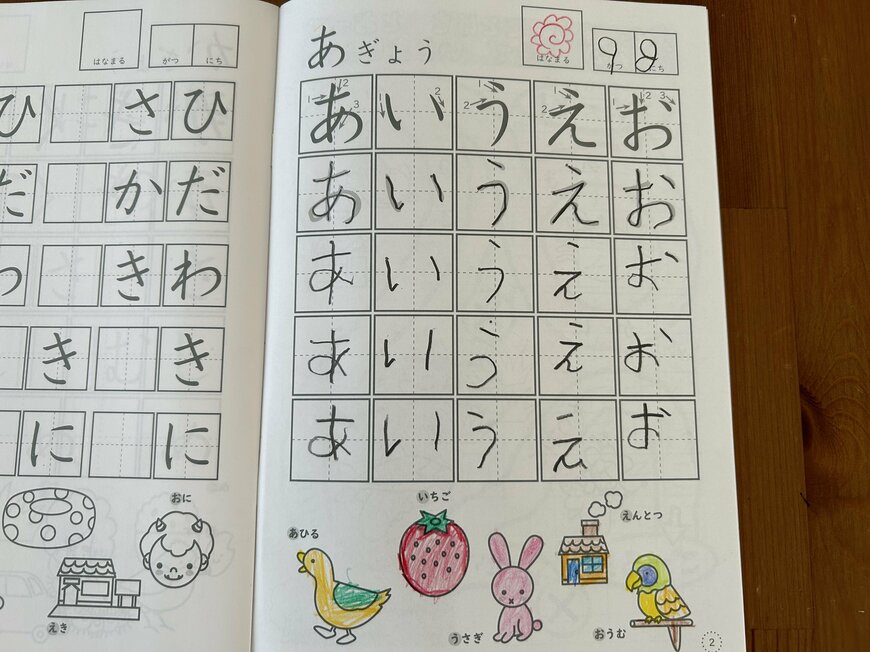 はなまる
がつ にち
ひ さ ひ
だ か だ
わ き わ
き き
に に
おに
えき
あぎょう
はなまる
9 8
がつ にち
あ い う え お
あ い う え お
あ い う え お
あ い う え お
あ い う え お
いちご
えんとつ
あひる
うさぎ
おうむ
2